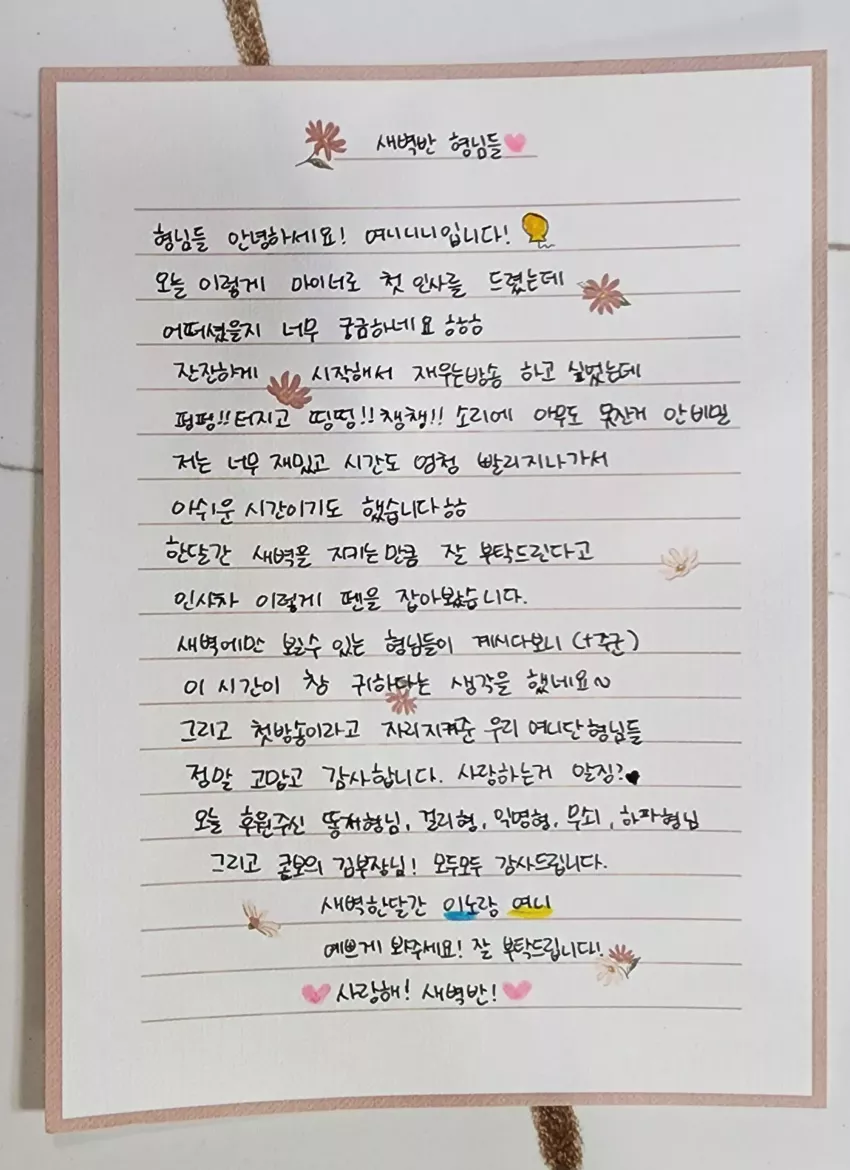 새벽반 형님들
형님들 안녕하세요! 여니니니입니다!
오늘 이렇게 마이너로 첫 인사를 드렸는데
어떠셨을지 너무 궁금하네요 ㅎㅎㅎ
잔잔하게 시작해서 재우는방송 하고 싶었는데
펑펑!!터지고 띵띵!!챙챙!! 소리에 아무도 못잔게 안비밀
저는 너무 재밌고 시간도 엄청 빨리지나가서
아쉬운 시간이기도 했습니다ㅎㅎ
한달간 새벽을 지키는만큼 잘 부탁드린다고
인사차 이렇게 펜을 잡아봤습니다.
새벽에만 보실수 있는 형님들이 계시다보니 (+주군)
이 시간이 참 귀하다는 생각을 했네요~
그리고 첫방송이라고 자리지켜준 우리 여니단형님들
정말 고맙고 감사합니다. 사랑하는거 알징?
오늘 후원주신 똥처형님, 걸리형, 익명형, 무쇠, 하파형님
그리고 콩보의 김부장님! 모두모두 감사드립니다.
새벽한달간 이노랑 여니
예쁘게 봐주세요! 잘 부탁드립니다!
사랑해! 새벽반!